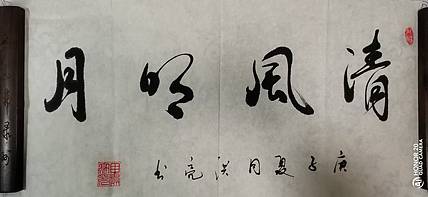 清风明月
庚子夏月洪亮书
HONOR 20
AI QUAD CAMERA